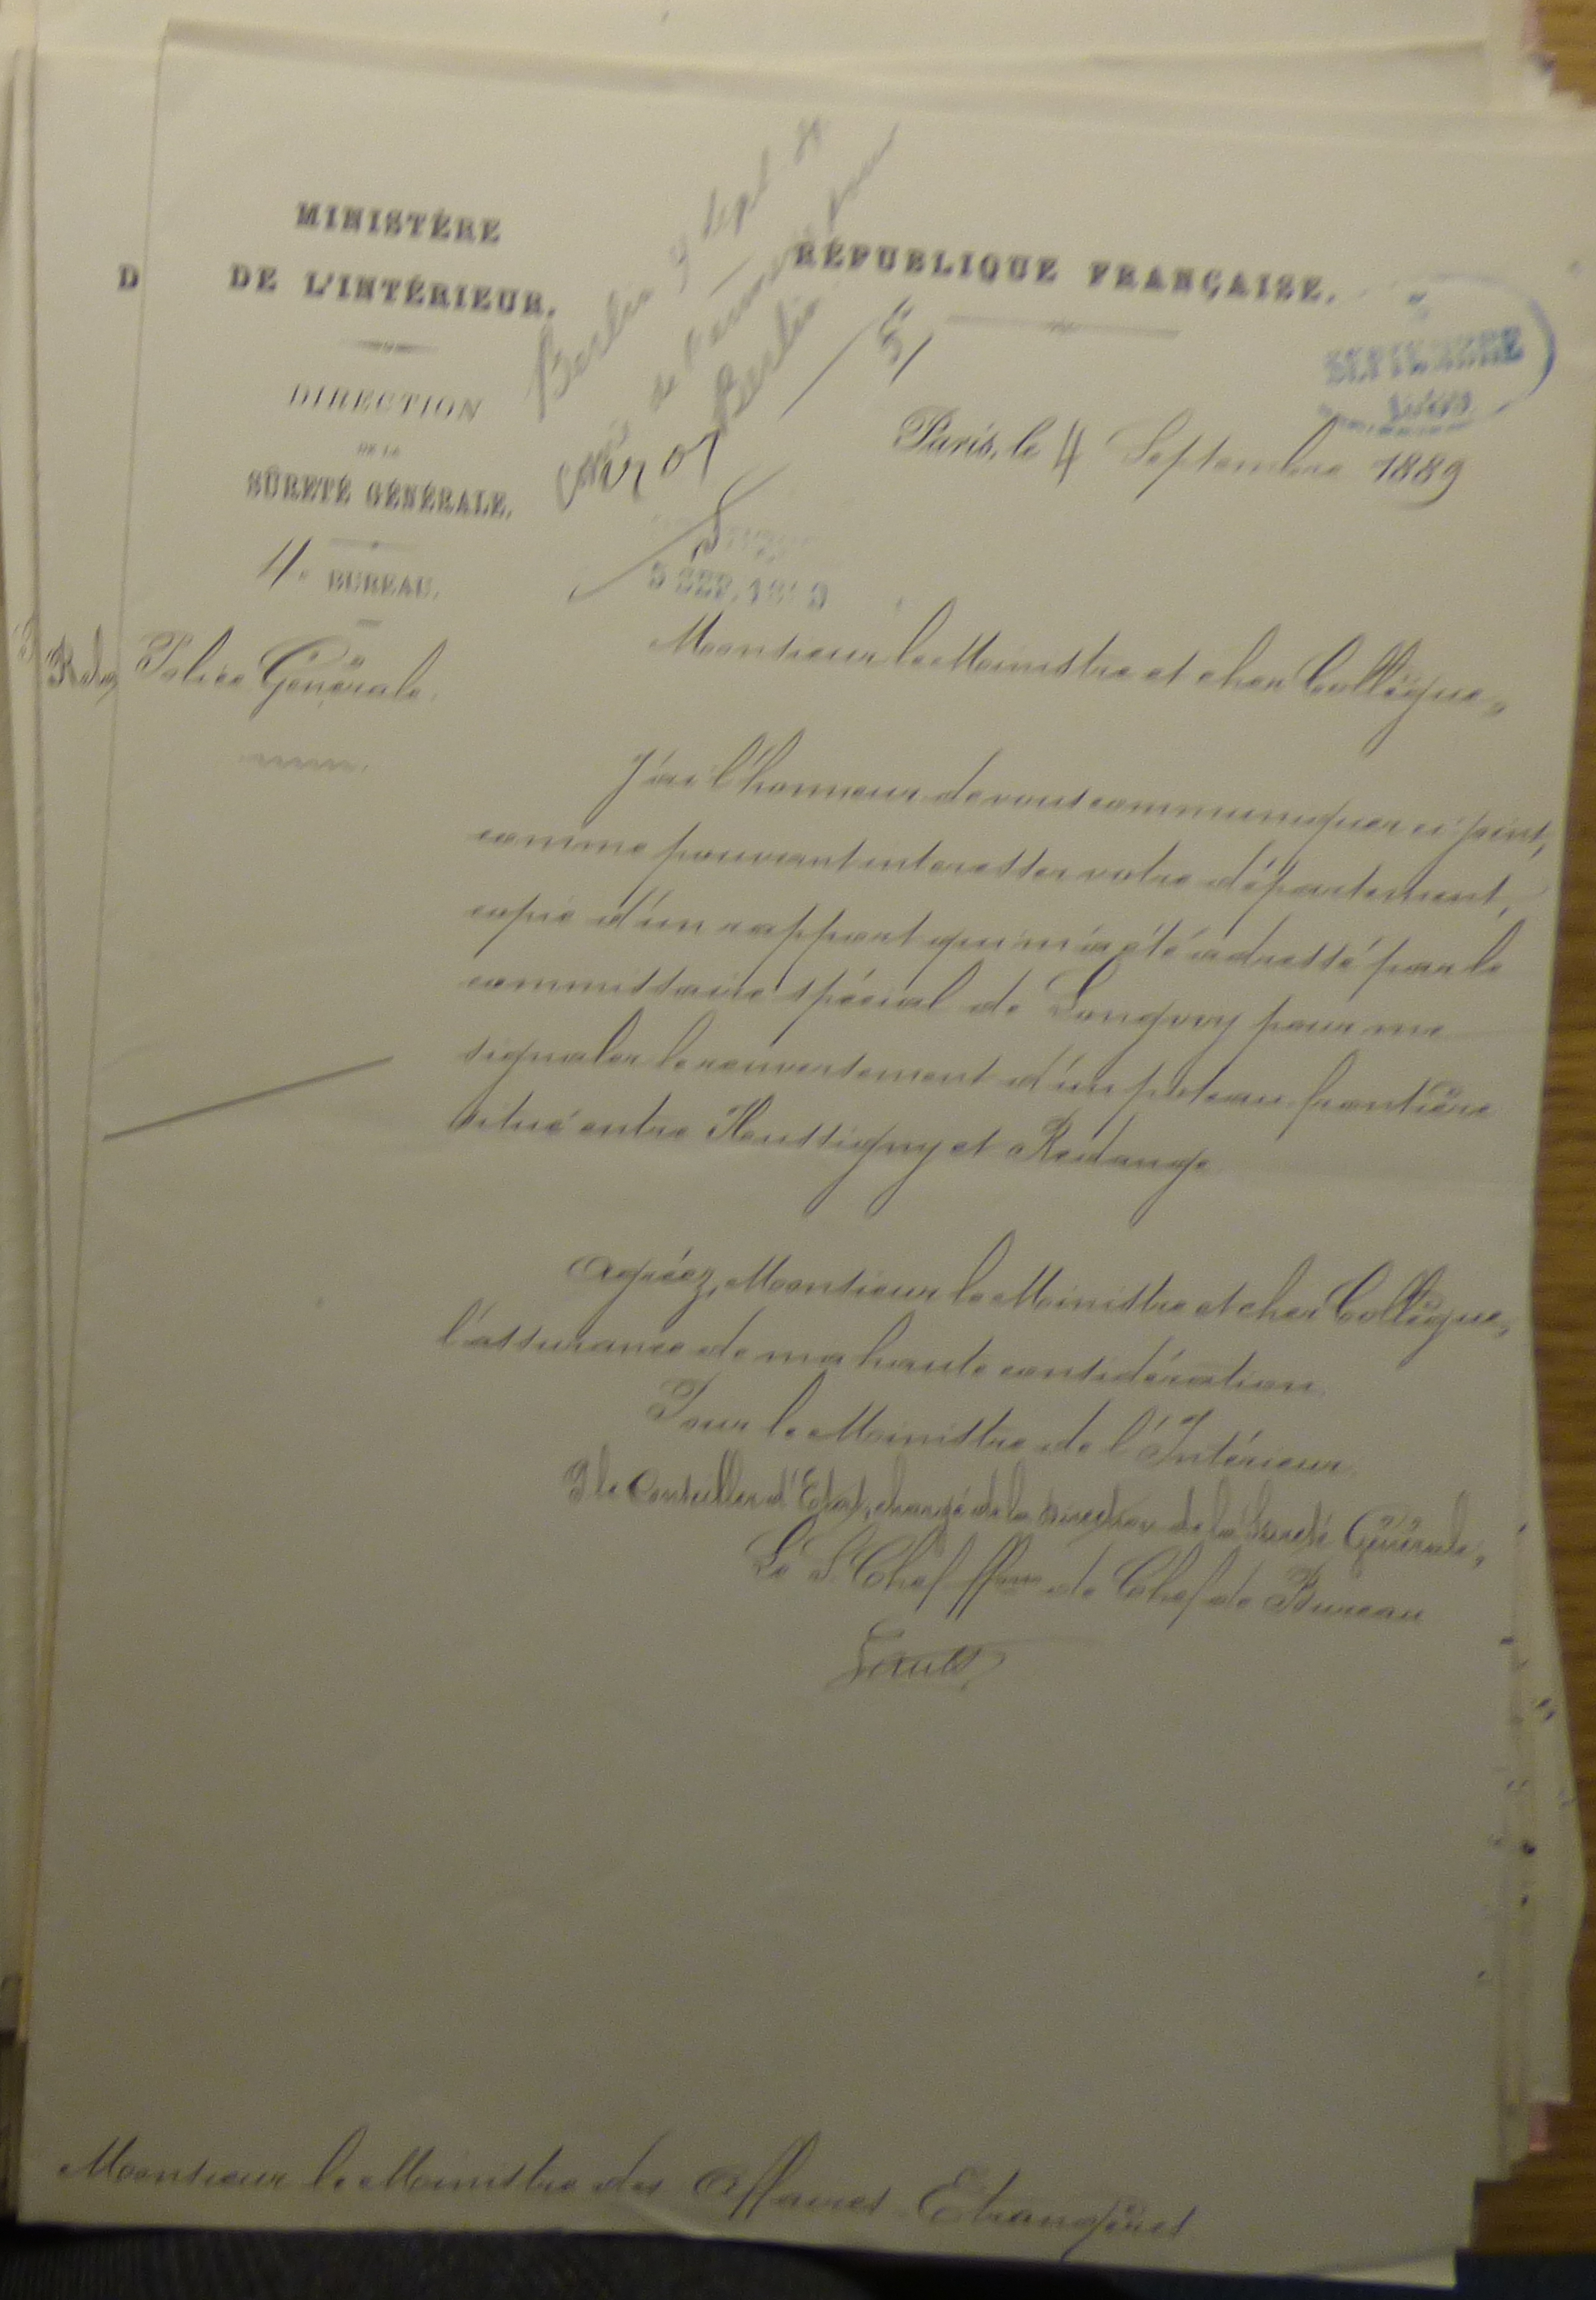 MINISTÈRE
DE L'INTÉRIEUR.
D
DIRECTION
DE LA
SÛRETÉ GÉNÉRALE.
4e BUREAU.
Police Générale.
Berlin 9 Sept. 89
Berlin
RÉPUBLIQUE FRANÇAISE.
SEPTEMBRE
Paris, le 4 Septembre 1889
5 SEP. 1889
Monsieur le Ministre et cher Collègue,
J'ai l'honneur de vous communiquer ci-joint,
comme pouvant intéresser votre département,
copie d'un rapport qui m'a été adressé par le
commissaire spécial de Longwy pour me
signaler le renversement d'un poteau frontière
situé entre Hussigny et Redange
Agréez, Monsieur le Ministre et cher Collègue,
l'assurance de ma haute considération.
Pour le Ministre de l'Intérieur
P. le Conseiller d'Etat, chargé de la direction de la Sureté Générale,
Le S. Chef ffons de Chef de Bureau
Monsieur le Ministre des Affaires Etrangères